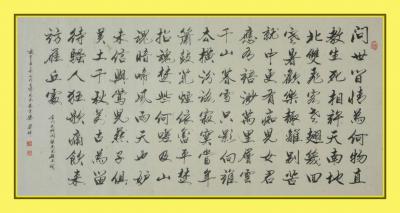 問世間情為何物直
教生死相許天南地
北雙飛客老翅幾回
寒暑歡樂趣離別苦
就中更有癡兒女君
應有語渺萬里層雲
千山暮雪只影向誰
去橫汾路寂寞當年
簫鼓荒煙依舊平楚
招魂楚些何嗟及山
鬼暗啼風雨天也妒
未信與鶯兒燕子俱
黃土千秋萬古為留
待騷人狂歌痛飲來
訪雁丘處